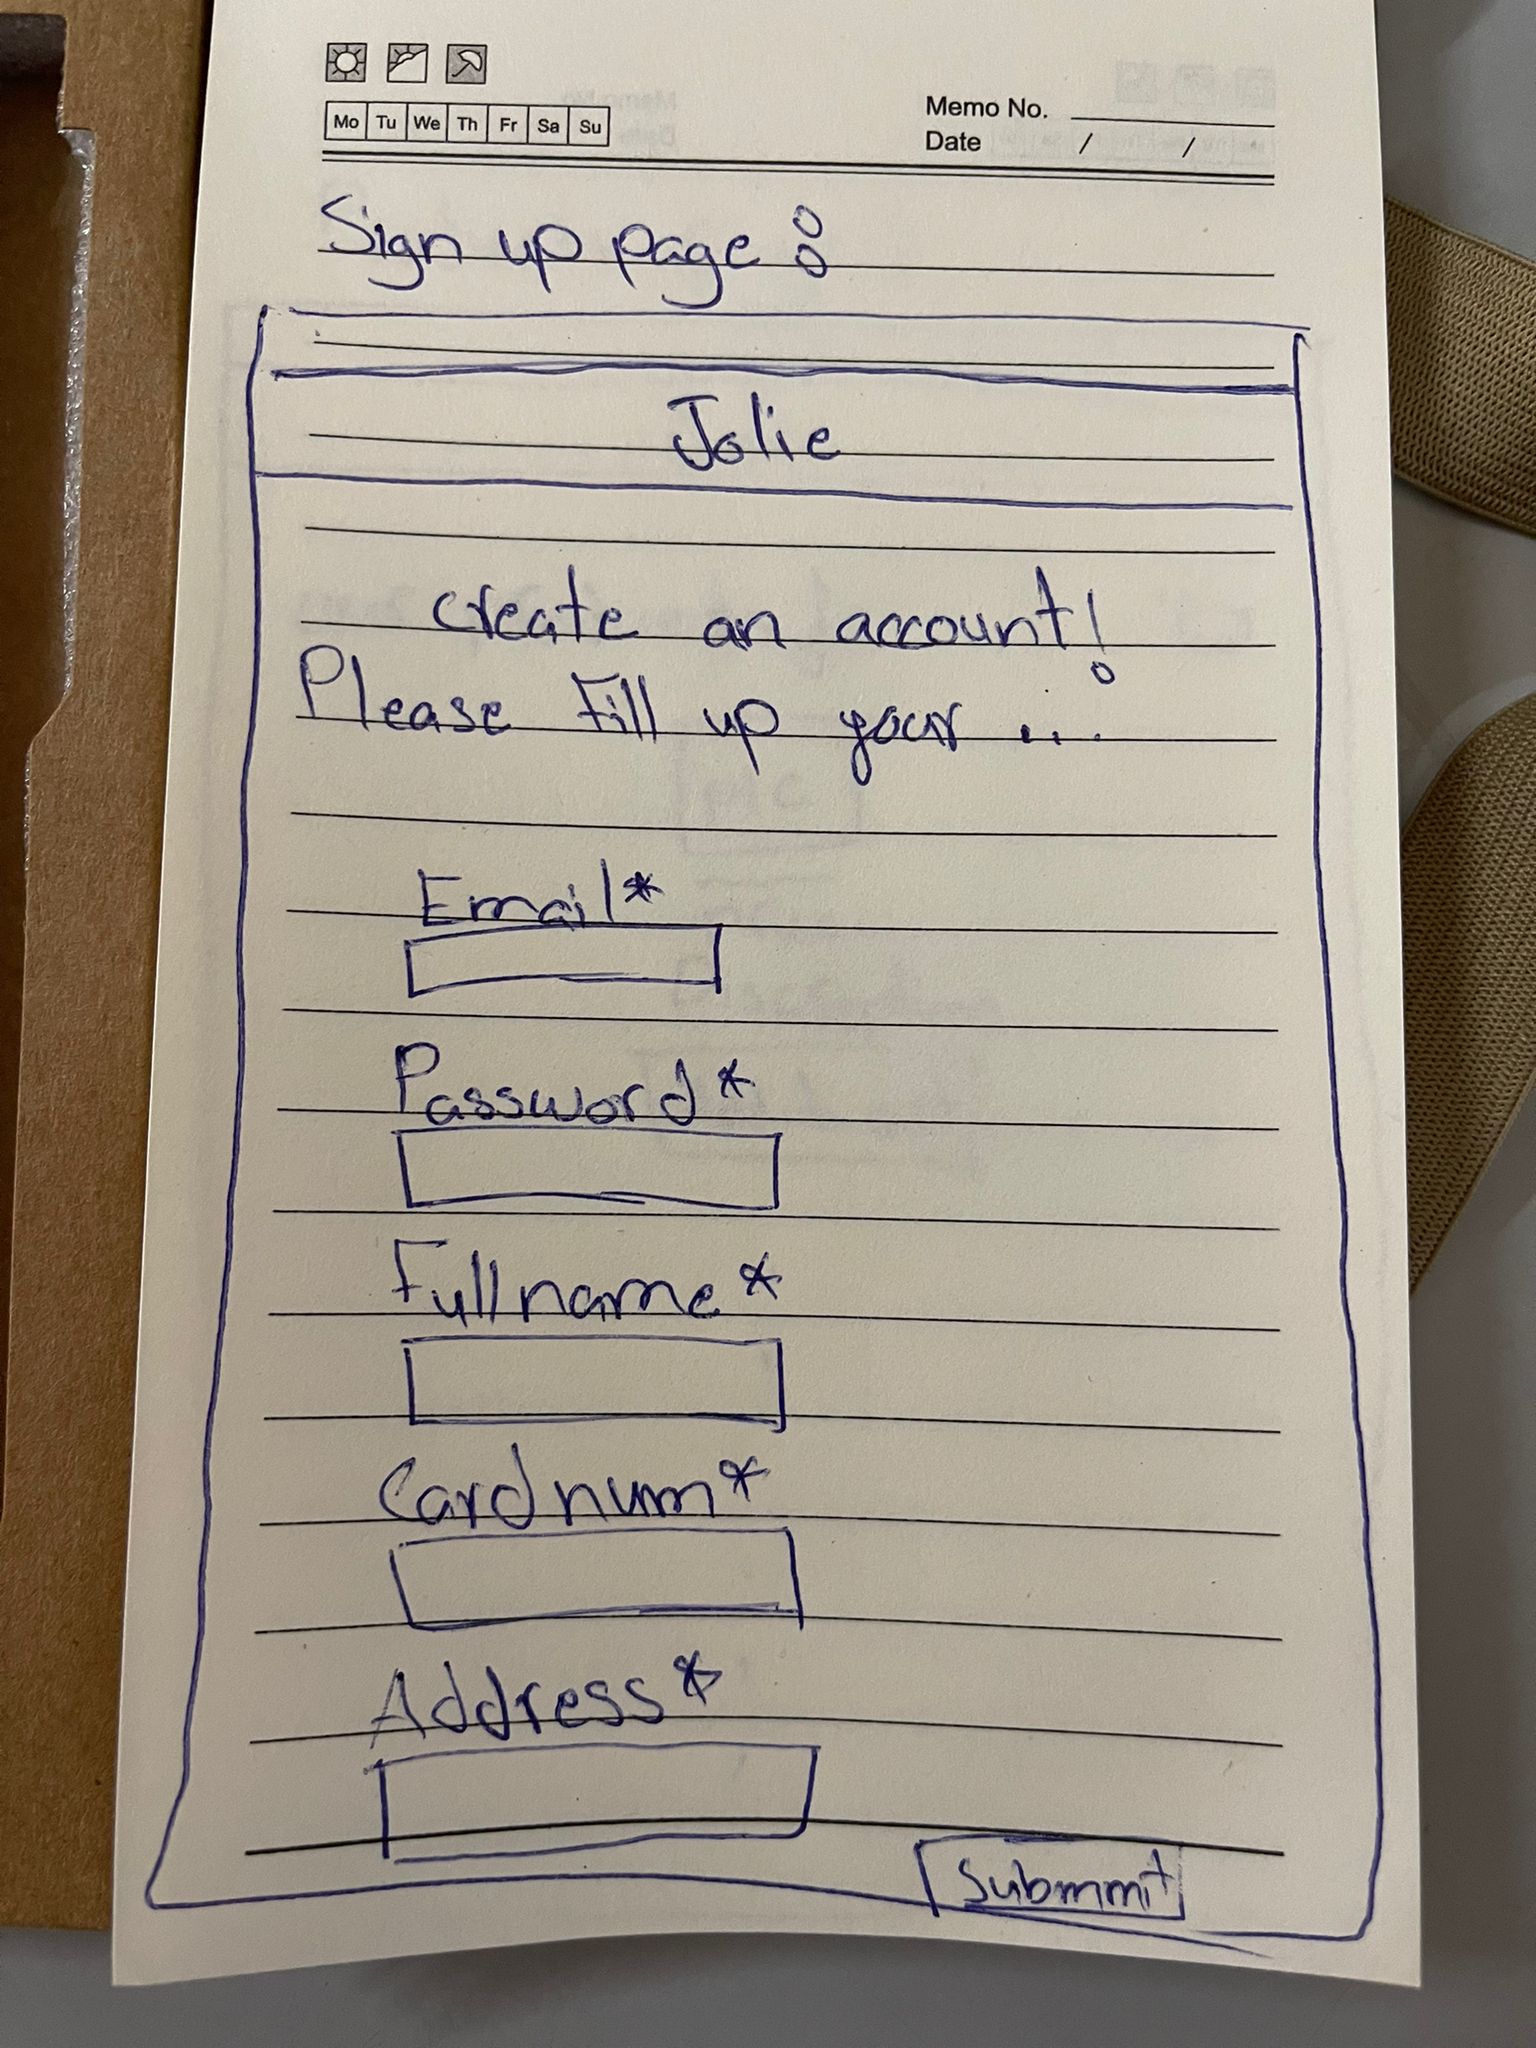 Mo Tu We Th Fr Sa Su
Memo No.
Date / /
Sign up page :
Jolie
create an account!
Please Fill up your ...
Email*
Password*
Full name*
Card num*
Address*
Submmit